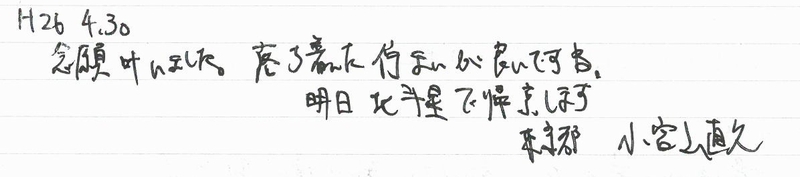 H26 4.30
念願叶いました。落ち着いた佇まいが良いですね。
明日北斗星で帰京します
東京都 小宮山直久